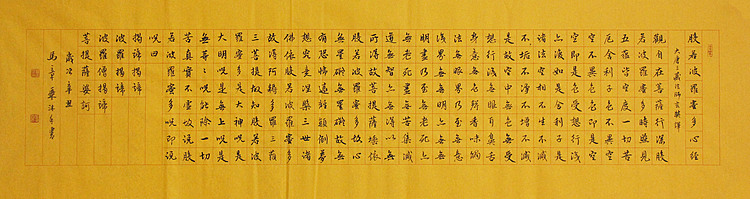 般若波羅蜜多心經
大唐三藏法師玄奘譯
觀自在菩薩行深般
若波羅蜜多時照見
五蘊皆空度一切苦
厄舍利子色不異空
空不異色色即是空
空即是色受想行識
亦復如是舍利子是
諸法空相不生不滅
不垢不淨不增不減
是故空中無色無受
想行識無眼耳鼻舌
身意無色聲香味觸
法無眼界乃至無意
識界無無明亦無無
明盡乃至無老死亦
無老死盡無苦集滅
道無智亦無得以無
所得故菩提薩埵依
般若波羅蜜多故心
無罣礙無罣礙故無
有恐怖遠離顛倒夢
想究竟涅槃三世諸
佛依般若波羅蜜多
故得阿耨多羅三藐
三菩提故知般若波
羅蜜多是大神呪是
大明呪是無上呪是
無等々呪能除一切
苦真實不虛故說般
若波羅蜜多呪即說
呪曰
揭諦揭諦
波羅揭諦
波羅僧揭諦
菩提薩婆訶
歲次辛丑
書